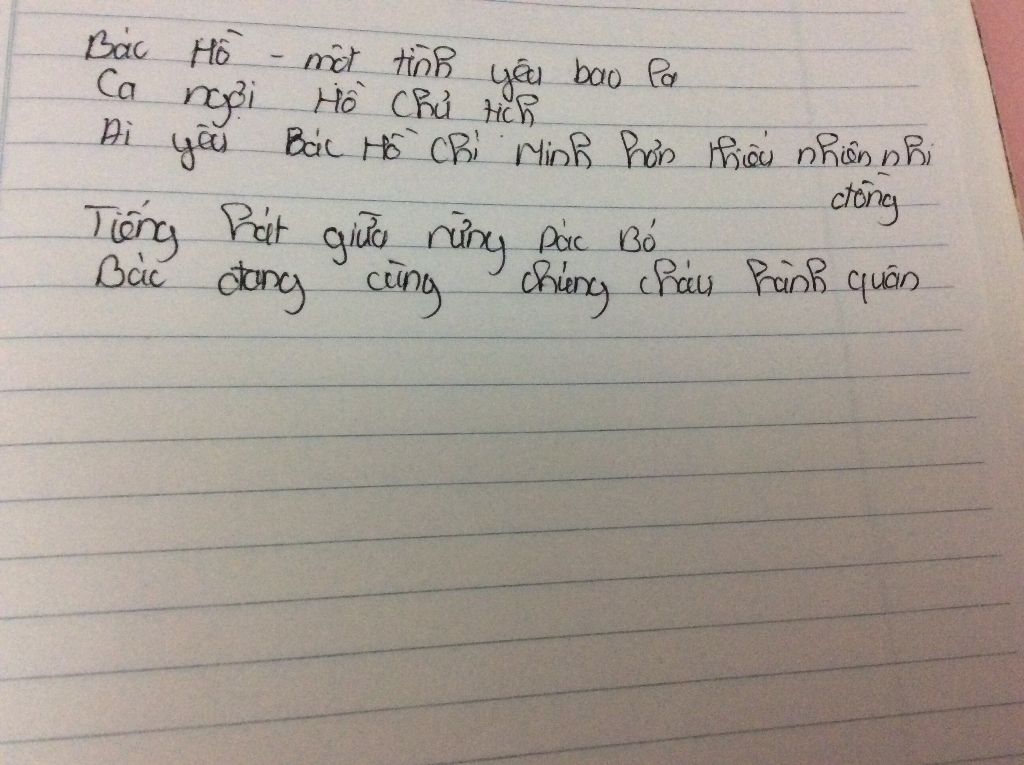 Bác Hồ - một tình yêu bao la
Ca ngợi Hồ Chủ tịch
Ai yêu Bác Hồ Chí Minh hơn thiếu nhiên nhi
đồng
Tiếng hát giữa rừng Pác Bó
Bác đang cùng chúng cháu hành quân